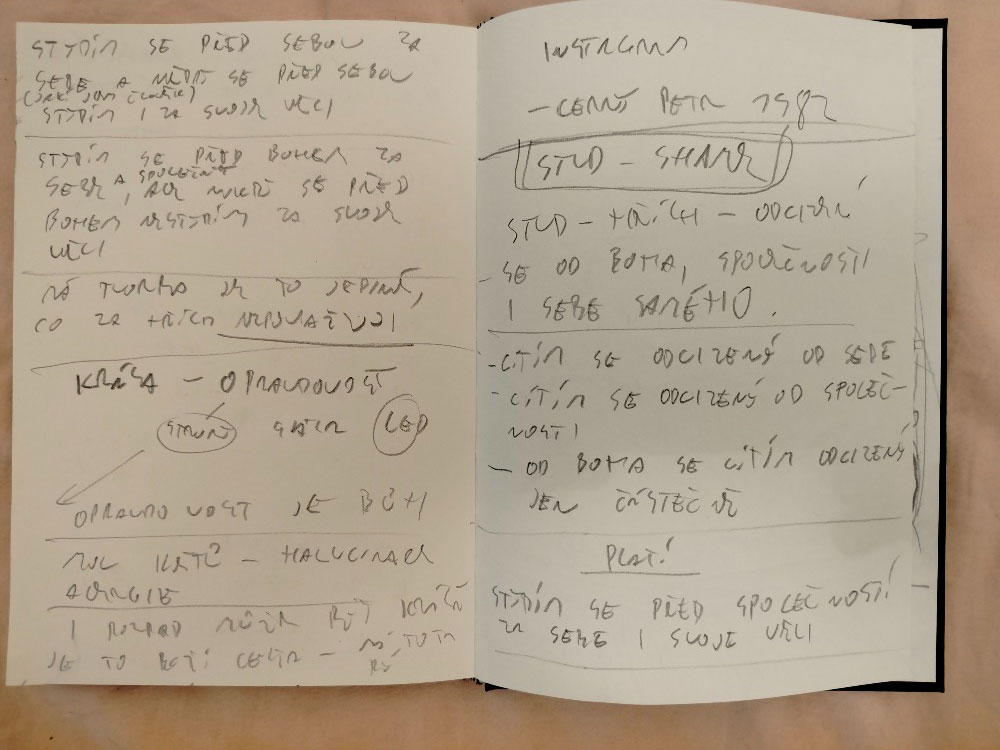 STYDÍM SE PŘED SEBOU ZA
SEBE A NĚKDY SE PŘED SEBOU
STYDÍM I ZA SVOJE VĚCI
STYDÍM SE PŘED BOHEM ZA
SEBE, A SPOLEČNĚ SE PŘED
BOHEM NESTYDÍM ZA SVOJE
VĚCI
MÁ TVORBA JE TO JEDINÉ,
CO ZA HŘÍCH NEPOVAŽUJI
KRÁSA – OPRAVDOVOST
LED
OPRAVDOVOST JE BŮH
– HALUCINACE
ALERGIE
I ROZPAD MŮŽE BÝT KRÁSA
JE TO
INSTAGRAM
– ČERNÝ PETR 1982
STUD – SHAME
STUD – HŘÍCH – ODCIZENÍ
SE OD BOHA, SPOLEČNOSTI
I SEBE SAMÉHO.
- CÍTÍM SE ODCIZENÝ OD SEBE
- CÍTÍM SE ODCIZENÝ OD SPOLEČ-
NOSTI
– OD BOHA SE CÍTÍM ODCIZENÝ
JEN ČÁSTEČNĚ
PLATÍ
STYDÍM SE PŘED SPOLEČNOSTÍ
ZA SEBE I SVOJE VĚCI